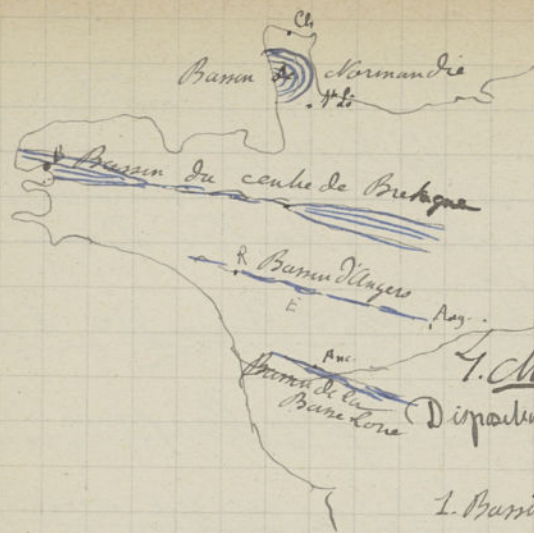 Ch
Bassin A Normandie
St Lô
B Bassin du centre de Bretagne
R Bassin d'Angers
E
Ang.
Anc.
Bassin de la
Basse Loire
1. Bassi